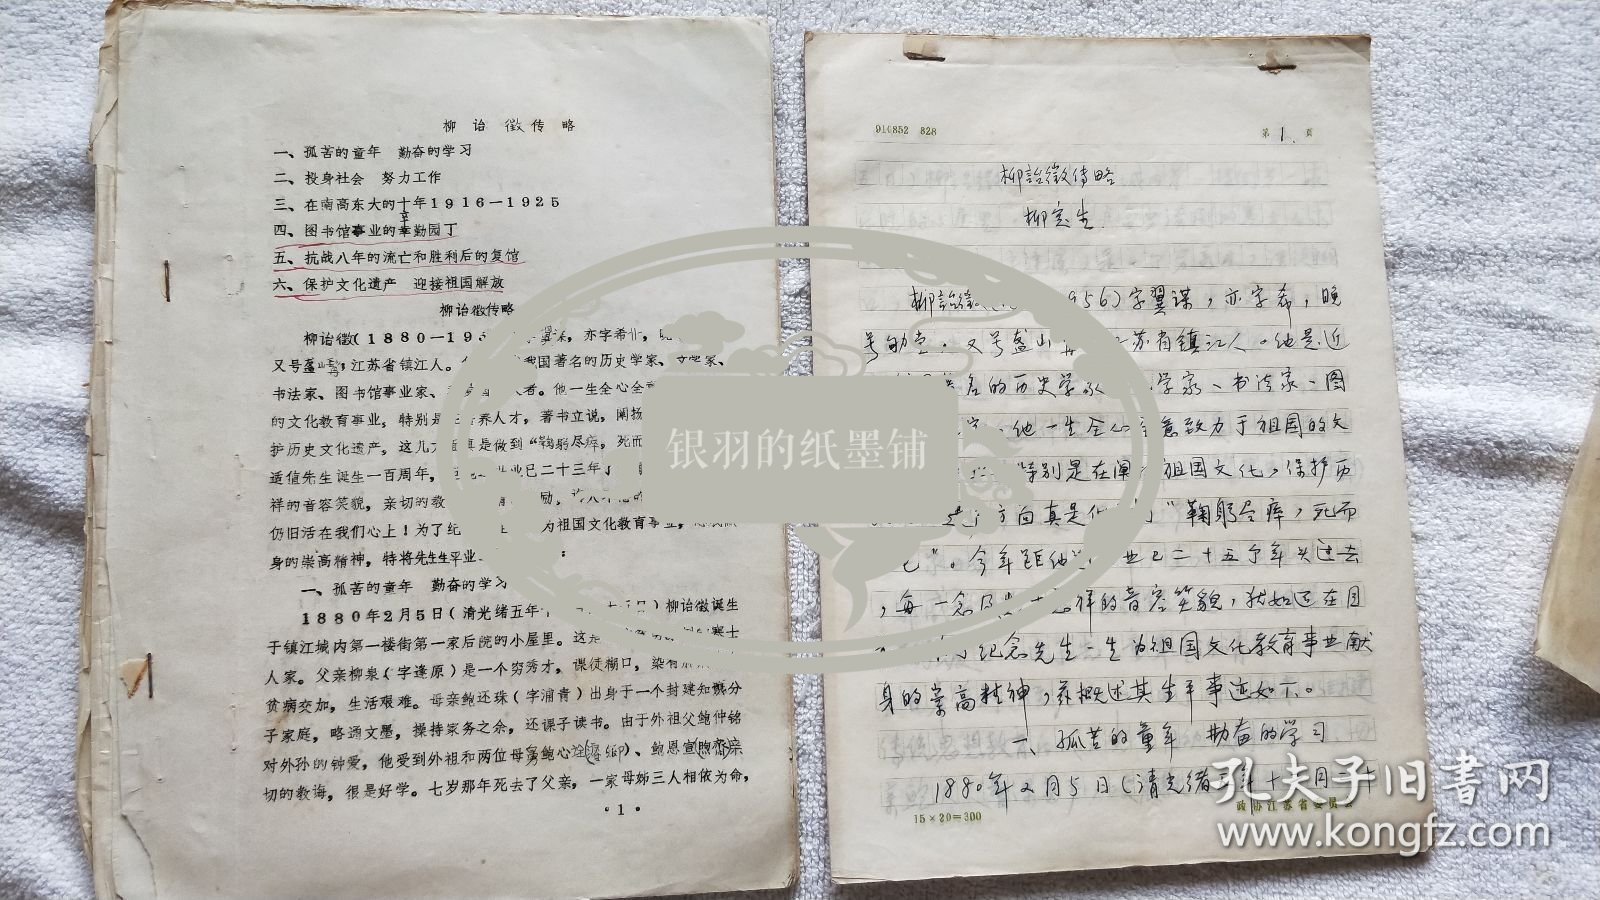 柳诒徵传略
一、孤苦的童年 勤奋的学习
二、投身社会 努力工作
三、在南高东大的十年1916—1925
四、图书馆事业的辛勤园丁
五、抗战八年的流亡和胜利后的复馆
六、保护文化遗产 迎接祖国解放
柳诒徵传略
柳诒徵(1880—195 亦字希
又号 江苏省镇江人。 我国著名的历史学家、 家、
书法家、图书馆事业家、 者。他一生全心全
的文化教育事业，特别是 养人才，著书立说，阐扬
护历史文化遗产，这几 真是做到“鞠躬尽瘁，死而
适值先生诞生一百周年， 已二十三年
祥的音容笑貌，亲切的教 励，
仍旧活在我们心上！为了纪 为祖国文化教育事业，
身的崇高精神，特将先生生平业 ：
一、孤苦的童年 勤奋的学习
1880年2月5日（清光绪五年 ）柳诒徵诞生
于镇江城内第一楼街第一家后院的小屋里。这是 寒士
人家。父亲柳泉（字逢原）是一个穷秀才，课徒糊口，染有
贫病交加，生活艰难。母亲鲍还珠（字浦青）出身于一个封建知识分
子家庭，略通文墨，操持家务之余，还课子读书。由于外祖父鲍仲铭
对外孙的钟爱，他受到外祖和两位母舅鲍心 、鲍恩宣 亲
切的教诲，很是好学。七岁那年死去了父亲，一家母姊三人相依为命，
·1·
910852 828
第1.页
柳詒徵传略
柳定生
柳詒徵 956)字翼谋，亦字希，晚
号劬堂，又号盋山 苏省镇江人。他是近
名的历史学家 学家、书法家、图
他一生全心 意致力于祖国的文
特别是在阐 祖国文化，保护历
方面真是做 “鞠躬尽瘁，死而
已”。今年距他 业已二十五个年头过去
，每一念及 祥的音容笑貌，犹如还在目
纪念先生一生为祖国文化教育事业献
身的崇高精神，兹概述其生平事迹如下。
一、孤苦的童年 勤奋的学习
1880年2月5日（清光绪五年十二月二十
15×20=300
政协江苏省委员会
银羽的纸墨铺
孔夫子旧书网
www.kongfz.com